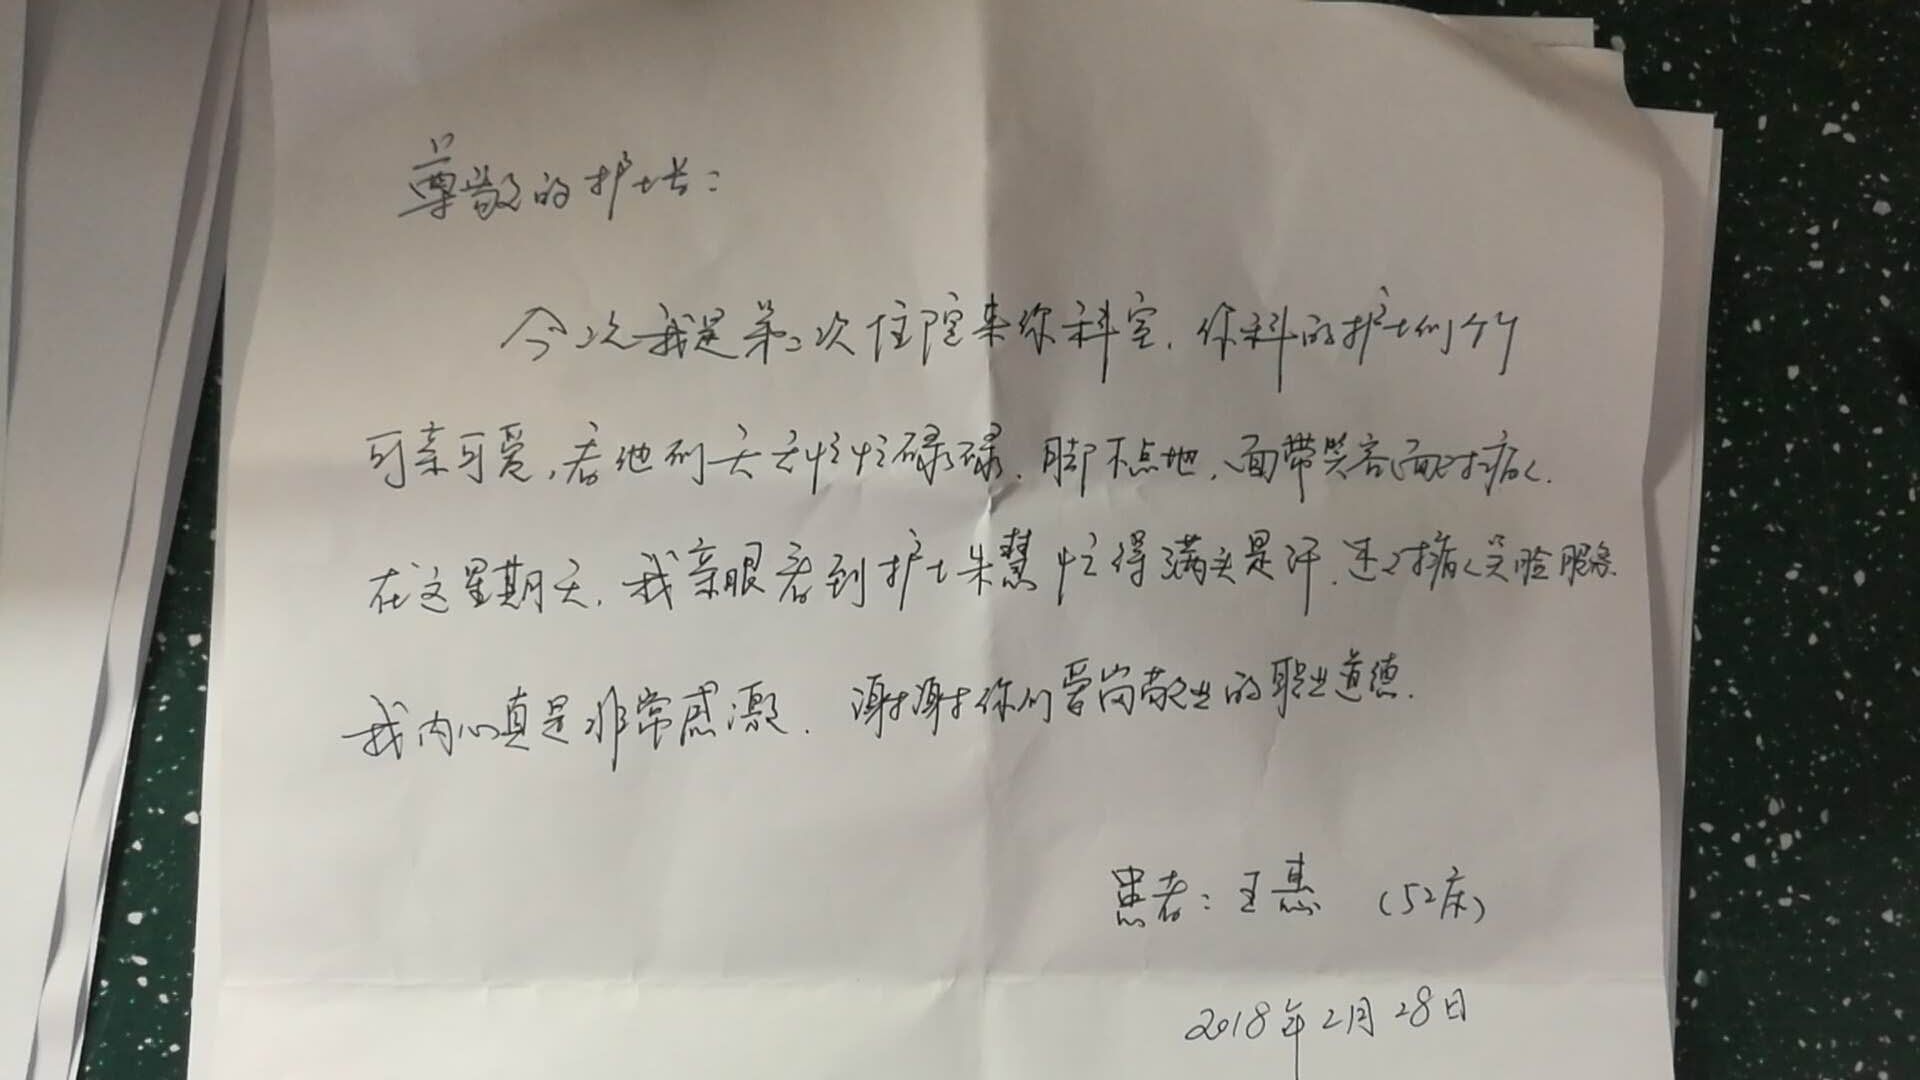 尊敬的护士长：
今次我是第二次住院来你科室，你科的护士们个个
可亲可爱，看他们天天忙忙碌碌，脚不点地，面带笑容面对病人．
在这星期天，我亲眼看到护士朱慧忙得满头是汗，还对病人笑脸服务．
我内心真是非常感激．谢谢你们爱岗敬业的职业道德．
患者：王惠（52床）
2018年2月28日